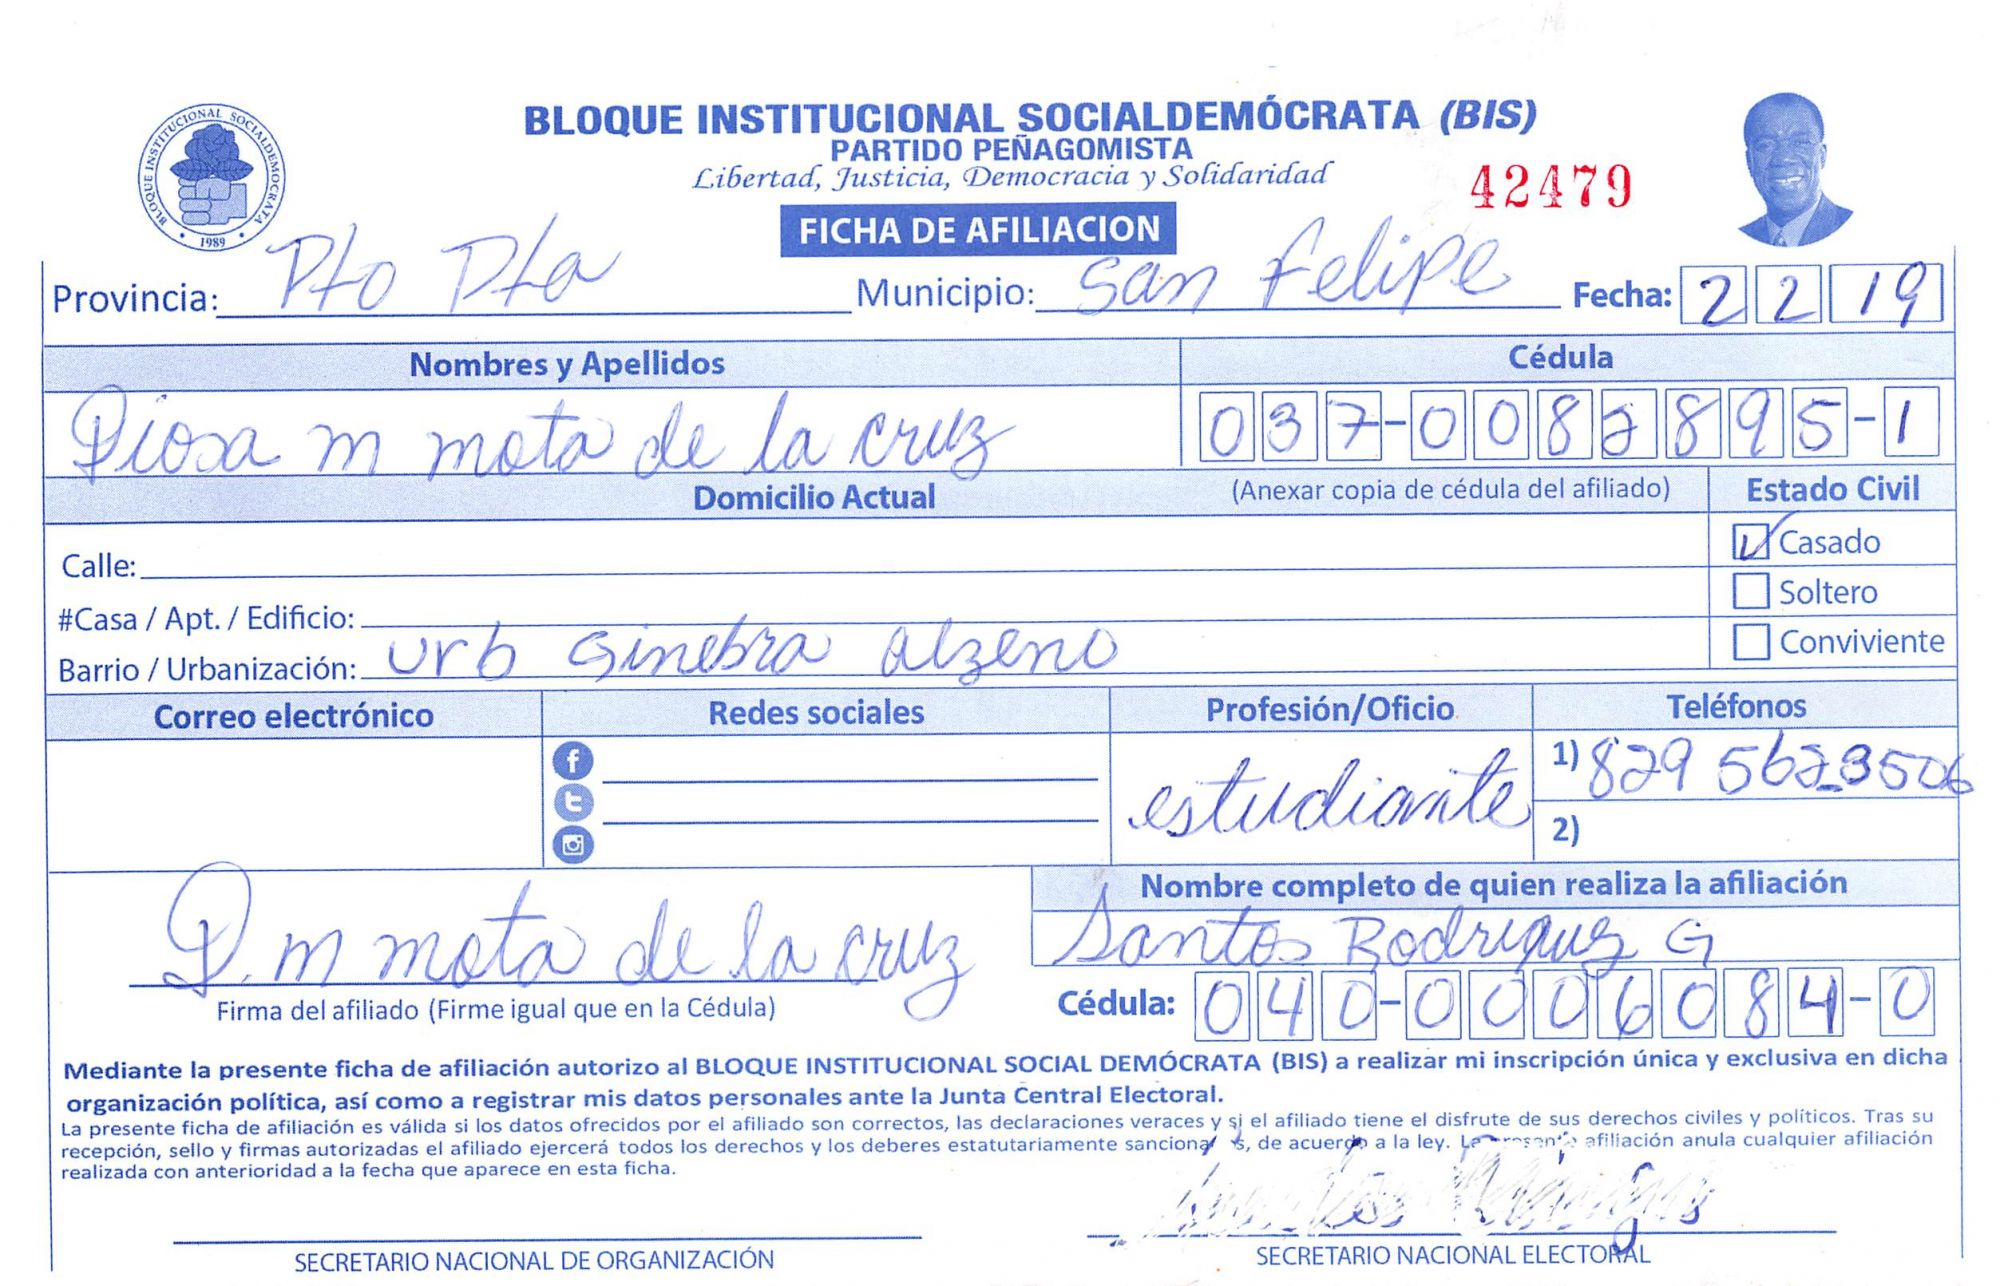 BLOQUE INSTITUCIONAL SOCIALDEMÓCRATA (BIS)
PARTIDO PEÑAGOMISTA
Libertad, Justicia, Democracia y Solidaridad
42479
BLOQUE INSTITUCIONAL SOCIALDEMOCRATA
1989
FICHA DE AFILIACION
Provincia: Pto Pta Municipio: San Felipe Fecha: 2 2 19
Nombres y Apellidos Cédula
Diosa m mota de la cruz 037-0082895-1
Domicilio Actual (Anexar copia de cédula del afiliado) Estado Civil
Calle: Casado
#Casa / Apt. / Edificio: Soltero
Barrio / Urbanización: urb Ginebra alzeno Conviviente
Correo electrónico Redes sociales Profesión/Oficio Teléfonos
estudiante 1) 829 562 3506
2)
Nombre completo de quien realiza la afiliación
D. m mota de la cruz Santos Rodriguez G
Firma del afiliado (Firme igual que en la Cédula) Cédula: 040-0006084-0
Mediante la presente ficha de afiliación autorizo al BLOQUE INSTITUCIONAL SOCIAL DEMÓCRATA (BIS) a realizar mi inscripción única y exclusiva en dicha
organización política, así como a registrar mis datos personales ante la Junta Central Electoral.
La presente ficha de afiliación es válida si los datos ofrecidos por el afiliado son correctos, las declaraciones veraces y si el afiliado tiene el disfrute de sus derechos civiles y políticos. Tras su
recepción, sello y firmas autorizadas el afiliado ejercerá todos los derechos y los deberes estatutariamente , de acuerdo a la ley. La presente afiliación anula cualquier afiliación
realizada con anterioridad a la fecha que aparece en esta ficha.
SECRETARIO NACIONAL DE ORGANIZACIÓN SECRETARIO NACIONAL ELECTORAL